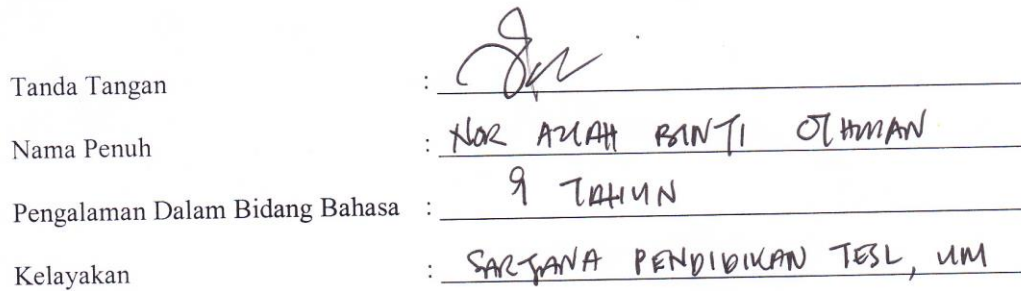 Tanda Tangan :
Nama Penuh : NOR AZLAH BINTI OTHMAN
Pengalaman Dalam Bidang Bahasa : 9 TAHUN
Kelayakan : SARJANA PENDIDIKAN TESL, UM